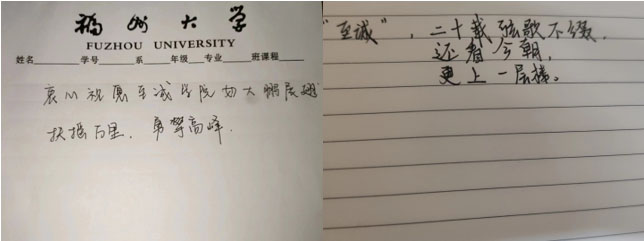 福州大学
FUZHOU UNIVERSITY
姓名 学号 系 年级 专业 班课程
衷心祝愿至诚学院如大鹏展翅
扶摇万里，勇攀高峰.
"至诚"，二十载弦歌不辍，
还看今朝，
更上一层楼。